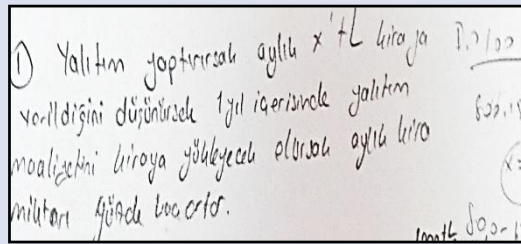 ① Yalıtım yaptırırsak aylık x'tL kiraya
verildiğini düşünürsek 1 yıl içerisinde yalıtım
maaliyetini kiraya yükleyecek olursak aylık kira
miktarı yüzde kaç artar.